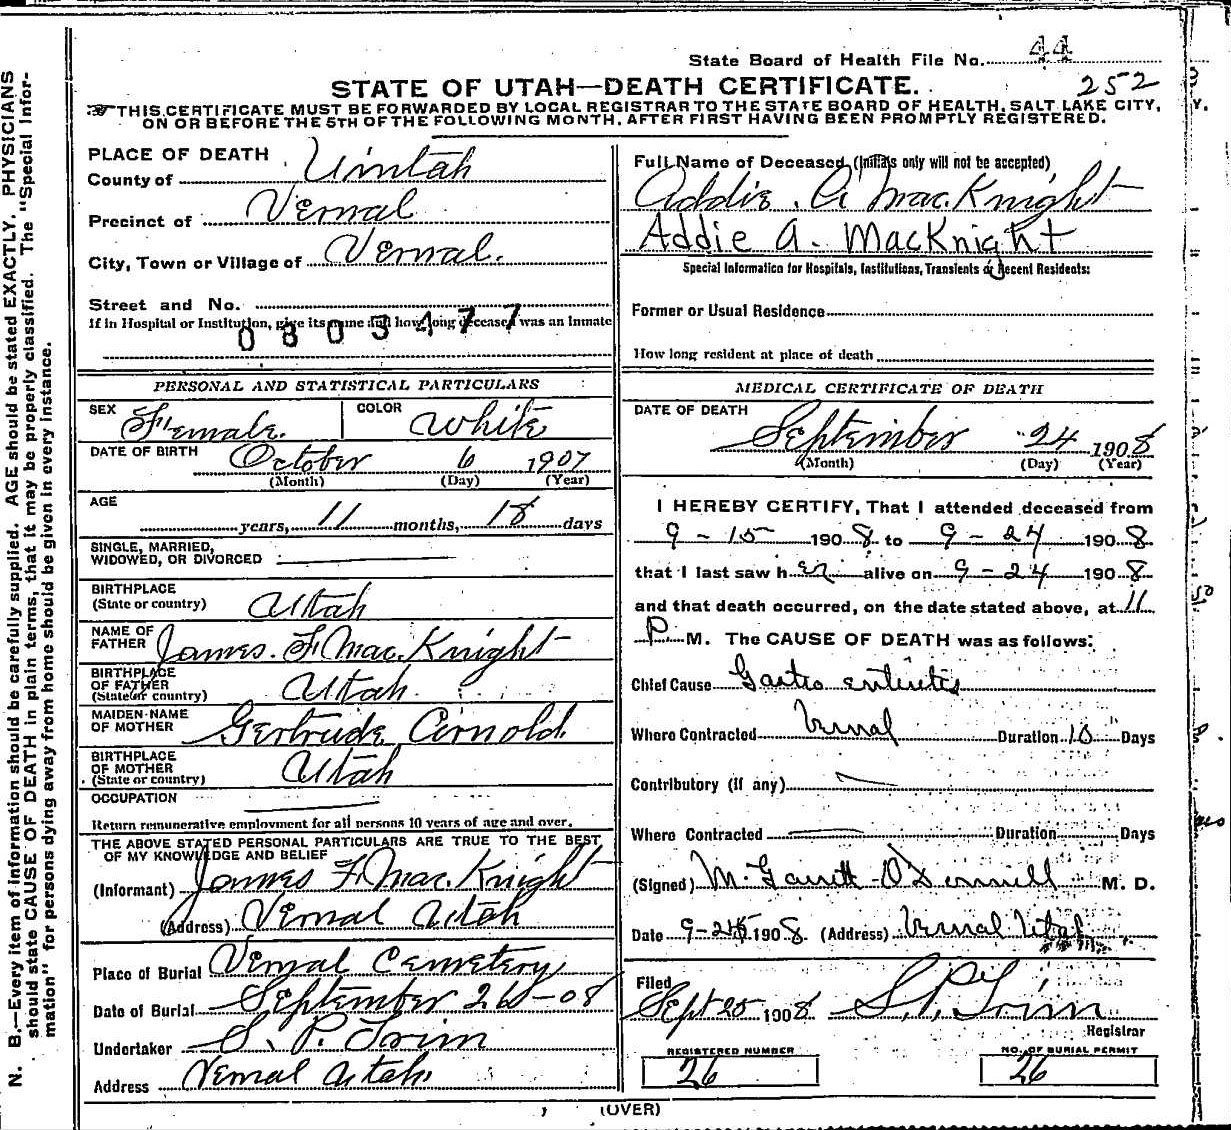 State Board of Health File No. 44
STATE OF UTAH—DEATH CERTIFICATE.
252
THIS CERTIFICATE MUST BE FORWARDED BY LOCAL REGISTRAR TO THE STATE BOARD OF HEALTH, SALT LAKE CITY,
ON OR BEFORE THE 5TH OF THE FOLLOWING MONTH, AFTER FIRST HAVING BEEN PROMPTLY REGISTERED.
N. B.—Every item of information should be carefully supplied. AGE should be stated EXACTLY. PHYSICIANS
should state CAUSE OF DEATH in plain terms, that it may be properly classified. The "Special Infor-
mation" for persons dying away from home should be given in every instance.
PLACE OF DEATH
County of Uintah
Precinct of Vernal
City, Town or Village of Vernal.
Street and No.
If in Hospital or Institution, give its name and how long deceased was an Inmate
0803477
PERSONAL AND STATISTICAL PARTICULARS
SEX Female.
COLOR White
DATE OF BIRTH October 6 1907
(Month) (Day) (Year)
AGE
years, 11 months, 18 days
SINGLE, MARRIED,
WIDOWED, OR DIVORCED
BIRTHPLACE
(State or country) Utah
NAME OF
FATHER James. F. Mac.Knight
BIRTHPLACE
OF FATHER
(State or country) Utah
MAIDEN NAME
OF MOTHER Gertrude Arnold
BIRTHPLACE
OF MOTHER
(State or country) Utah
OCCUPATION
Return remunerative employment for all persons 10 years of age and over.
THE ABOVE STATED PERSONAL PARTICULARS ARE TRUE TO THE BEST
OF MY KNOWLEDGE AND BELIEF
(Informant) James F. Mac.Knight
(Address) Vernal Utah
Place of Burial Vernal Cemetery
Date of Burial September 26-08
Undertaker S. P. Trim
Address Vernal Utah.
Full Name of Deceased (Initials only will not be accepted)
Addie. A Mac.Knight
Addie A. MacKnight
Special Information for Hospitals, Institutions, Transients or Recent Residents:
Former or Usual Residence
How long resident at place of death
MEDICAL CERTIFICATE OF DEATH
DATE OF DEATH
September 24 1908
(Month) (Day) (Year)
I HEREBY CERTIFY, That I attended deceased from
9-15 1908 to 9-24 1908.
that I last saw her alive on 9-24 1908.
and that death occurred, on the date stated above, at 11
P. M. The CAUSE OF DEATH was as follows:
Chief Cause Gastro enteritis
Where Contracted Vernal Duration 10 Days
Contributory (if any)
Where Contracted Duration Days
(Signed) M. Garrett-O'Donnell M. D.
Date 9-25 1908. (Address) Vernal Utah
Filed
Sept 25 1908 S. P. Trim
Registrar
REGISTERED NUMBER
26
NO. OF BURIAL PERMIT
26
(OVER)